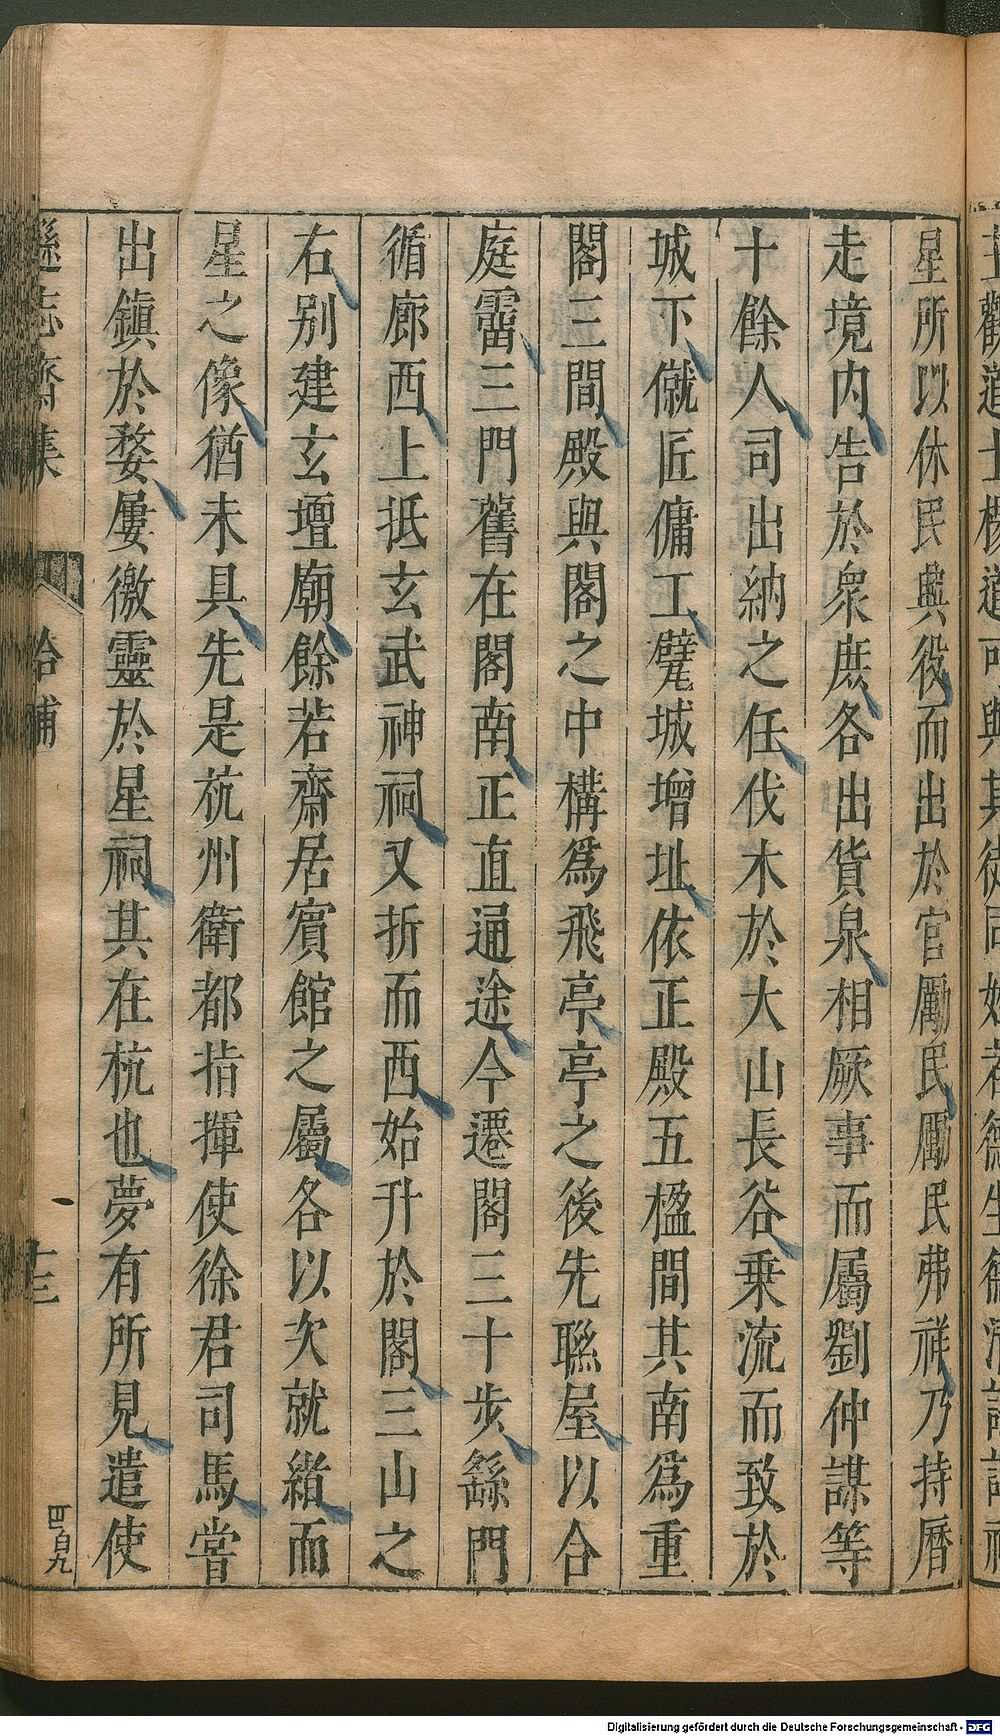 星所以休民與役而出於官勵民勵民弗祥乃持曆
走境内告於衆庶各出貨泉相厥事而屬劉仲謀等
十餘人司出納之任伐木於大山長谷乗流而致於
城下僦匠傭工甓城增址依正殿五楹間其南爲重
閣三間殿與閣之中構爲飛亭亭之後先聮屋以合
庭霤三門舊在閣南正直通途今遷閣三十步繇門
循廊西上抵玄武神祠又折而西始升於閣三山之
右别建玄壇廟餘若齋居賓館之屬各以次就緒而
星之像猶未具先是杭州衛都指揮使徐君司馬嘗
出鎮於婺屢徼靈於星祠其在杭也夢有所見遣使
遜志齋集
拾補
十三
四百九
Digitalisierung gefördert durch die Deutsche Forschungsgemeinschaft - DFG